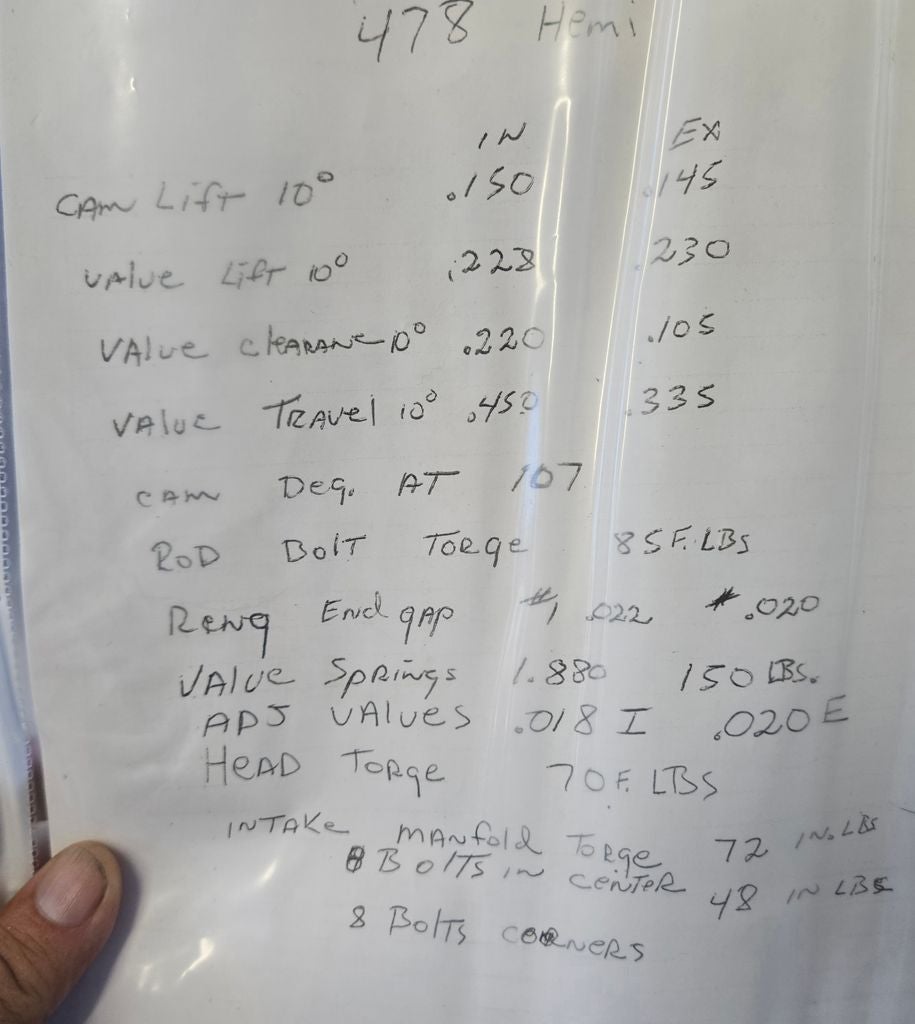 478 Hemi
IN EX
CAM LiFT 10° .150 .145
VAlue LiFT 10° .228 .230
VAlue cleARANC 10° .220 .105
VAlue TRAvel 10° .450 .335
CAM Deg. AT 107
ROD BolT Torge 85 F. LBS
Reng End gAP #1 .022 # .020
VAlue SPRINgs 1.880 150 LBS.
ADJ VAlues .018 I .020 E
HeAD Torge 70 F. LBS
INTAKe MANfold Torge 72 IN. LBS
8 BolTS IN CENTER 48 IN LBS
8 BolTs CORNERS